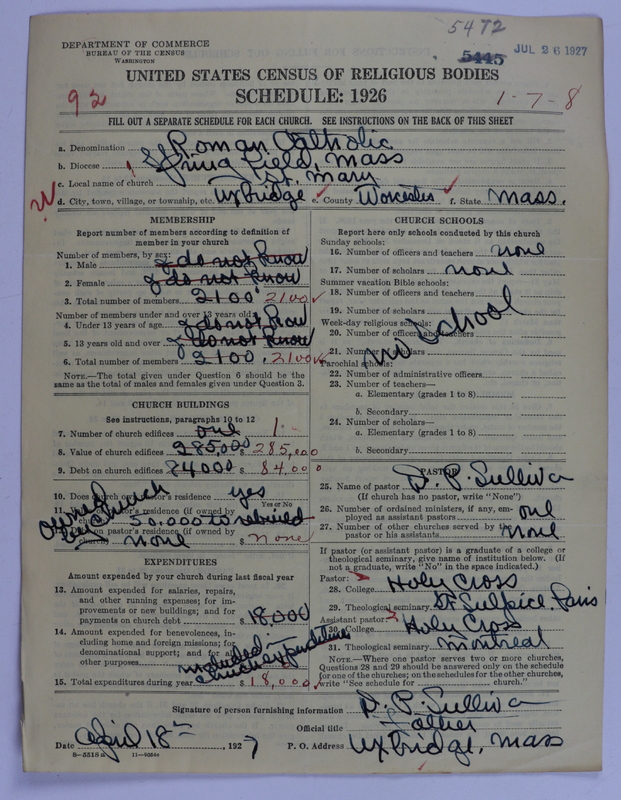 5472
DEPARTMENT OF COMMERCE
BUREAU OF THE CENSUS
WASHINGTON
5445
JUL 26 1927
UNITED STATES CENSUS OF RELIGIOUS BODIES
SCHEDULE: 1926
92
1-7-8
FILL OUT A SEPARATE SCHEDULE FOR EACH CHURCH. SEE INSTRUCTIONS ON THE BACK OF THIS SHEET
a. Denomination Roman Catholic
b. Diocese Springfield, Mass
c. Local name of church St. Mary
d. City, town, village, or township, etc. Uxbridge e. County Worcester f. State Mass.
MEMBERSHIP
Report number of members according to definition of
member in your church
Number of members, by sex:
1. Male I do not know
2. Female I do not know
3. Total number of members 2100 2100
Number of members under and over 13 years old
4. Under 13 years of age I do not know
5. 13 years old and over I do not know
6. Total number of members 2100. 2100
NOTE.—The total given under Question 6 should be the
same as the total of males and females given under Question 3.
CHURCH BUILDINGS
See instructions, paragraphs 10 to 12
7. Number of church edifices one 1
8. Value of church edifices 285,000 $ 285,000
9. Debt on church edifices 84000 $ 84.000
10. Does church own pastor's residence yes
Yes or No
owned by church
11. pastor's residence (if owned by
church) 50.000 to rebuild
on pastor's residence (if owned by
church) none $ none
EXPENDITURES
Amount expended by your church during last fiscal year
13. Amount expended for salaries, repairs,
and other running expenses; for im-
provements or new buildings; and for
payments on church debt $ 18,000
14. Amount expended for benevolences, in-
cluding home and foreign missions; for
denominational support; and for all
other purposes included in church expenditures
15. Total expenditures during year $ 18,000.
CHURCH SCHOOLS
Report here only schools conducted by this church
Sunday schools:
16. Number of officers and teachers none
17. Number of scholars none
Summer vacation Bible schools:
18. Number of officers and teachers
19. Number of scholars
Week-day religious schools:
20. Number of officers and teachers
no school
21. Number of scholars
Parochial schools:
22. Number of administrative officers
23. Number of teachers—
a. Elementary (grades 1 to 8)
b. Secondary
24. Number of scholars—
a. Elementary (grades 1 to 8)
b. Secondary
PASTOR
25. Name of pastor D. P. Sulliva
(If church has no pastor, write "None")
26. Number of ordained ministers, if any, em-
ployed as assistant pastors one
27. Number of other churches served by the
pastor or his assistants none
If pastor (or assistant pastor) is a graduate of a college or
theological seminary, give name of institution below. (If
not a graduate, write "No" in the space indicated.)
Pastor:
28. College Holy Cross
29. Theological seminary St Sulpice Paris
Assistant pastor:
30. College Holy Cross
31. Theological seminary Montreal
NOTE.—Where one pastor serves two or more churches,
Questions 28 and 29 should be answered only on the schedule
for one of the churches; on the schedules for the other churches,
write "See schedule for church."
Signature of person furnishing information D. P. Sulliva
Official title
Date April 18th, 1927 P. O. Address Uxbridge, Mass
8—5518a 11—9084a